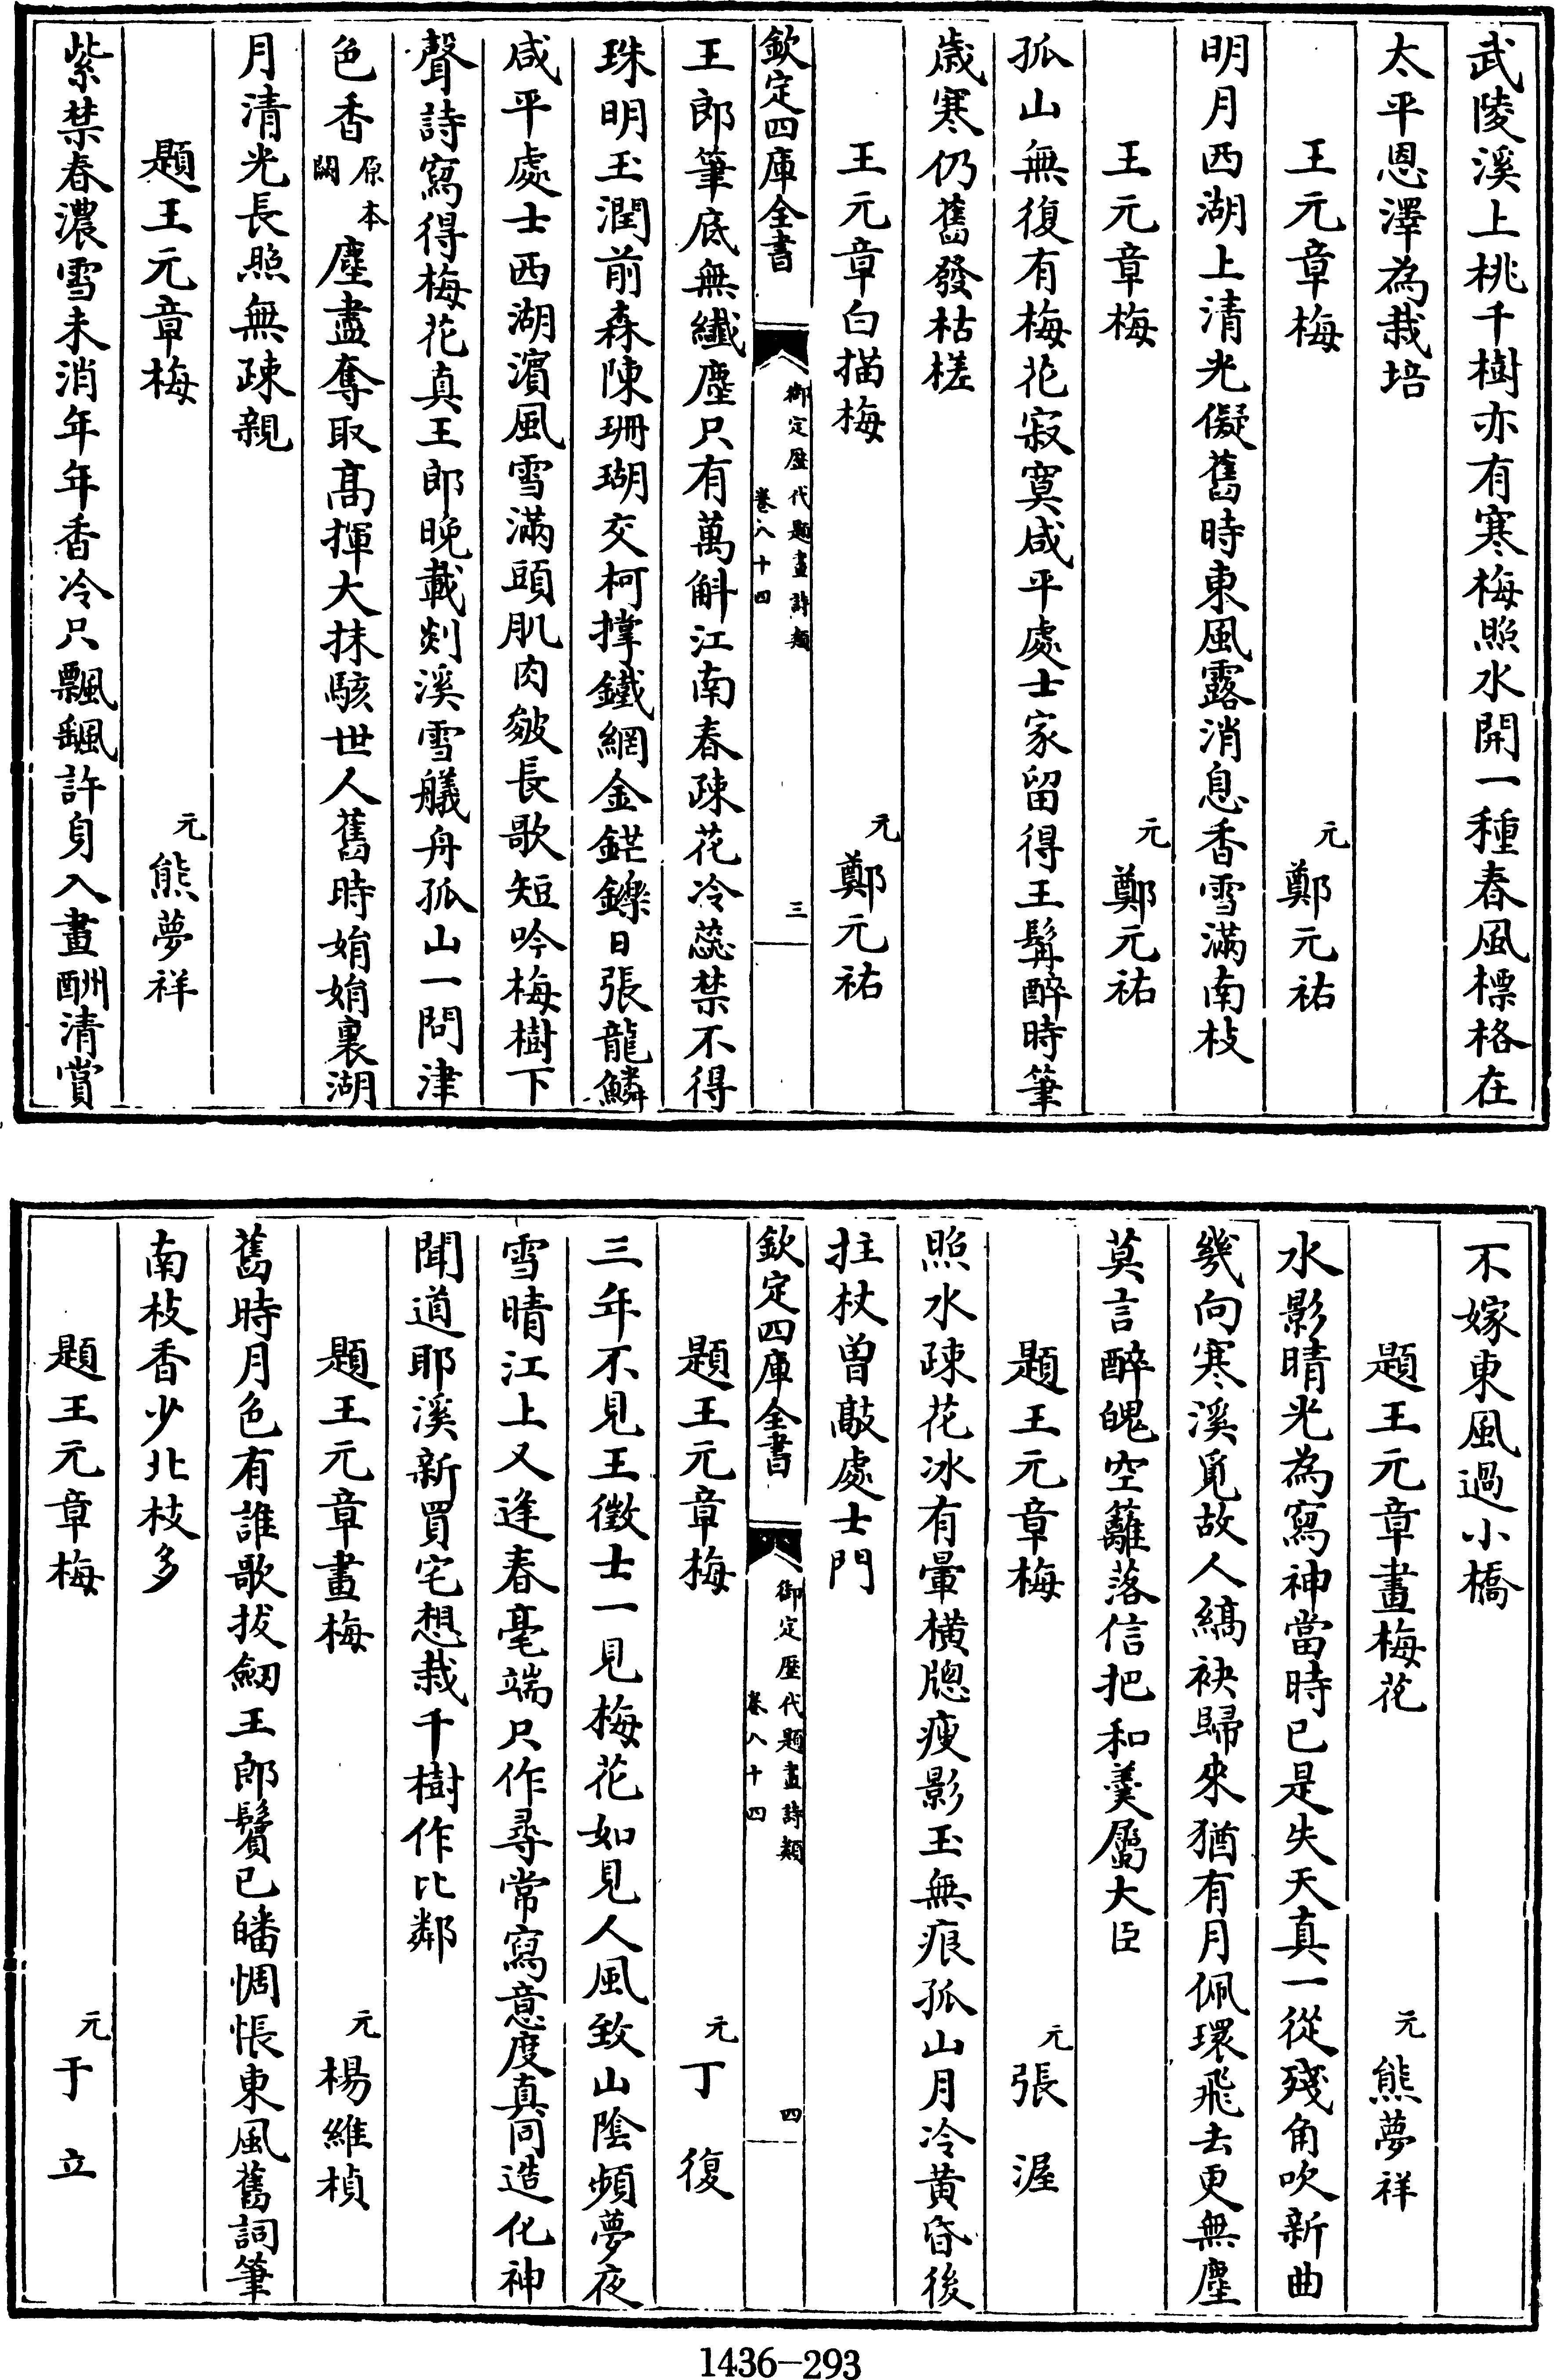 武陵溪上桃千樹亦有寒梅照水開一種春風標格在
太平恩澤為栽培
王元章梅
元
鄭元祐
明月西湖上清光儗舊時東風露消息香雪滿南枝
王元章梅
元
鄭元祐
孤山無復有梅花寂寞咸平處士家留得王髯醉時筆
歲寒仍舊發枯槎
王元章白描梅
元
鄭元祐
欽定四庫全書
御定歷代題畫詩類
卷八十四
三
王郎筆底無纖塵只有萬斛江南春疎花冷蕊禁不得
珠明玉潤前森陳珊瑚交柯撐鐵網金鋩鑠日張龍鱗
咸平處士西湖濱風雪滿頭肌肉皴長歌短吟梅樹下
聲詩寫得梅花真王郎晚載剡溪雪艤舟孤山一問津
色香
原本
闕
塵盡奪取高揮大抹駭世人舊時娟娟裏湖
月清光長照無疎親
題王元章梅
元
熊夢祥
紫禁春濃雪未消年年香冷只飄颻許身入畫酬清賞
不嫁東風過小橋
題王元章畫梅花
元
熊夢祥
水影晴光為寫神當時已是失天真一從殘角吹新曲
幾向寒溪覓故人縞袂歸來猶有月佩環飛去更無塵
莫言醉魄空籬落信把和羹屬大臣
題王元章梅
元
張渥
照水疎花冰有暈橫牕瘦影玉無痕孤山月冷黃昏後
拄杖曾敲處士門
欽定四庫全書
御定歷代題畫詩類
卷八十四
四
題王元章梅
元
丁復
三年不見王徵士一見梅花如見人風致山陰頻夢夜
雪晴江上又逢春毫端只作尋常寫意度真同造化神
聞道耶溪新買宅想栽千樹作比鄰
題王元章畫梅
元
楊維楨
舊時月色有誰歌拔劒王郎鬢已皤惆悵東風舊詞筆
南枝香少北枝多
題王元章梅
元
于立
1436-293